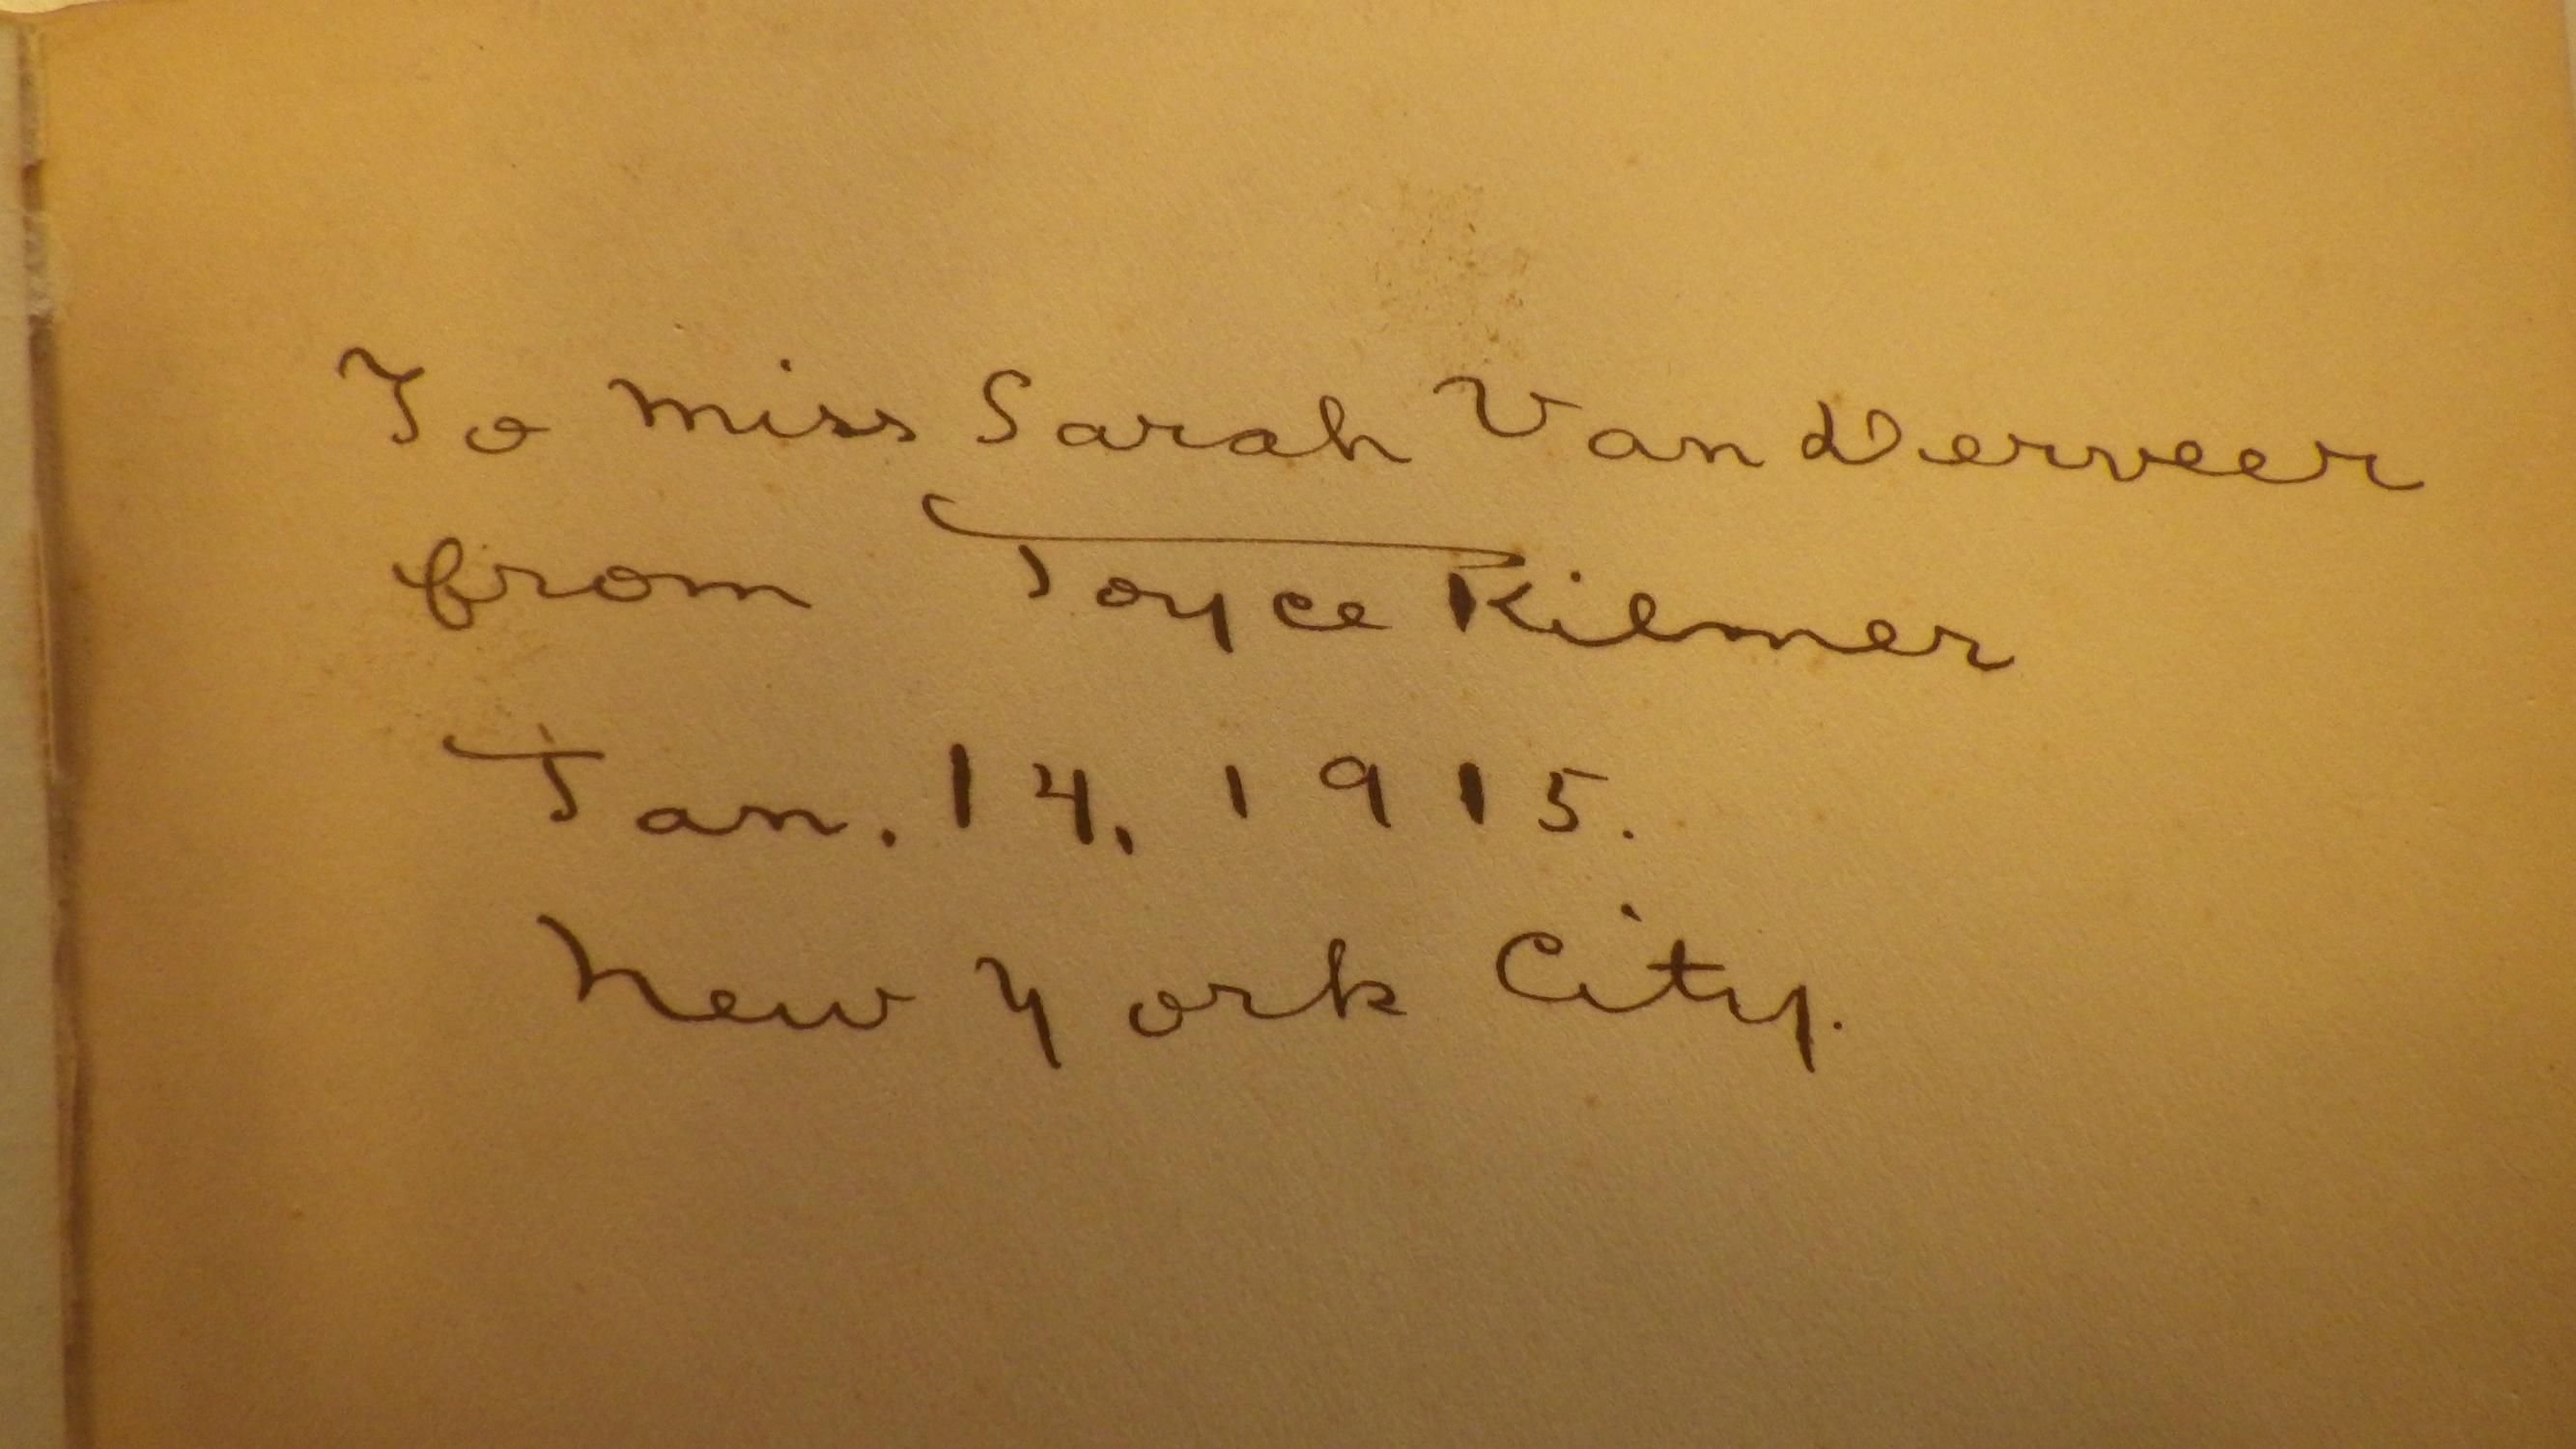 To Miss Sarah Van Derveer
from Joyce Kilmer
Jan. 14, 1915.
New York City.